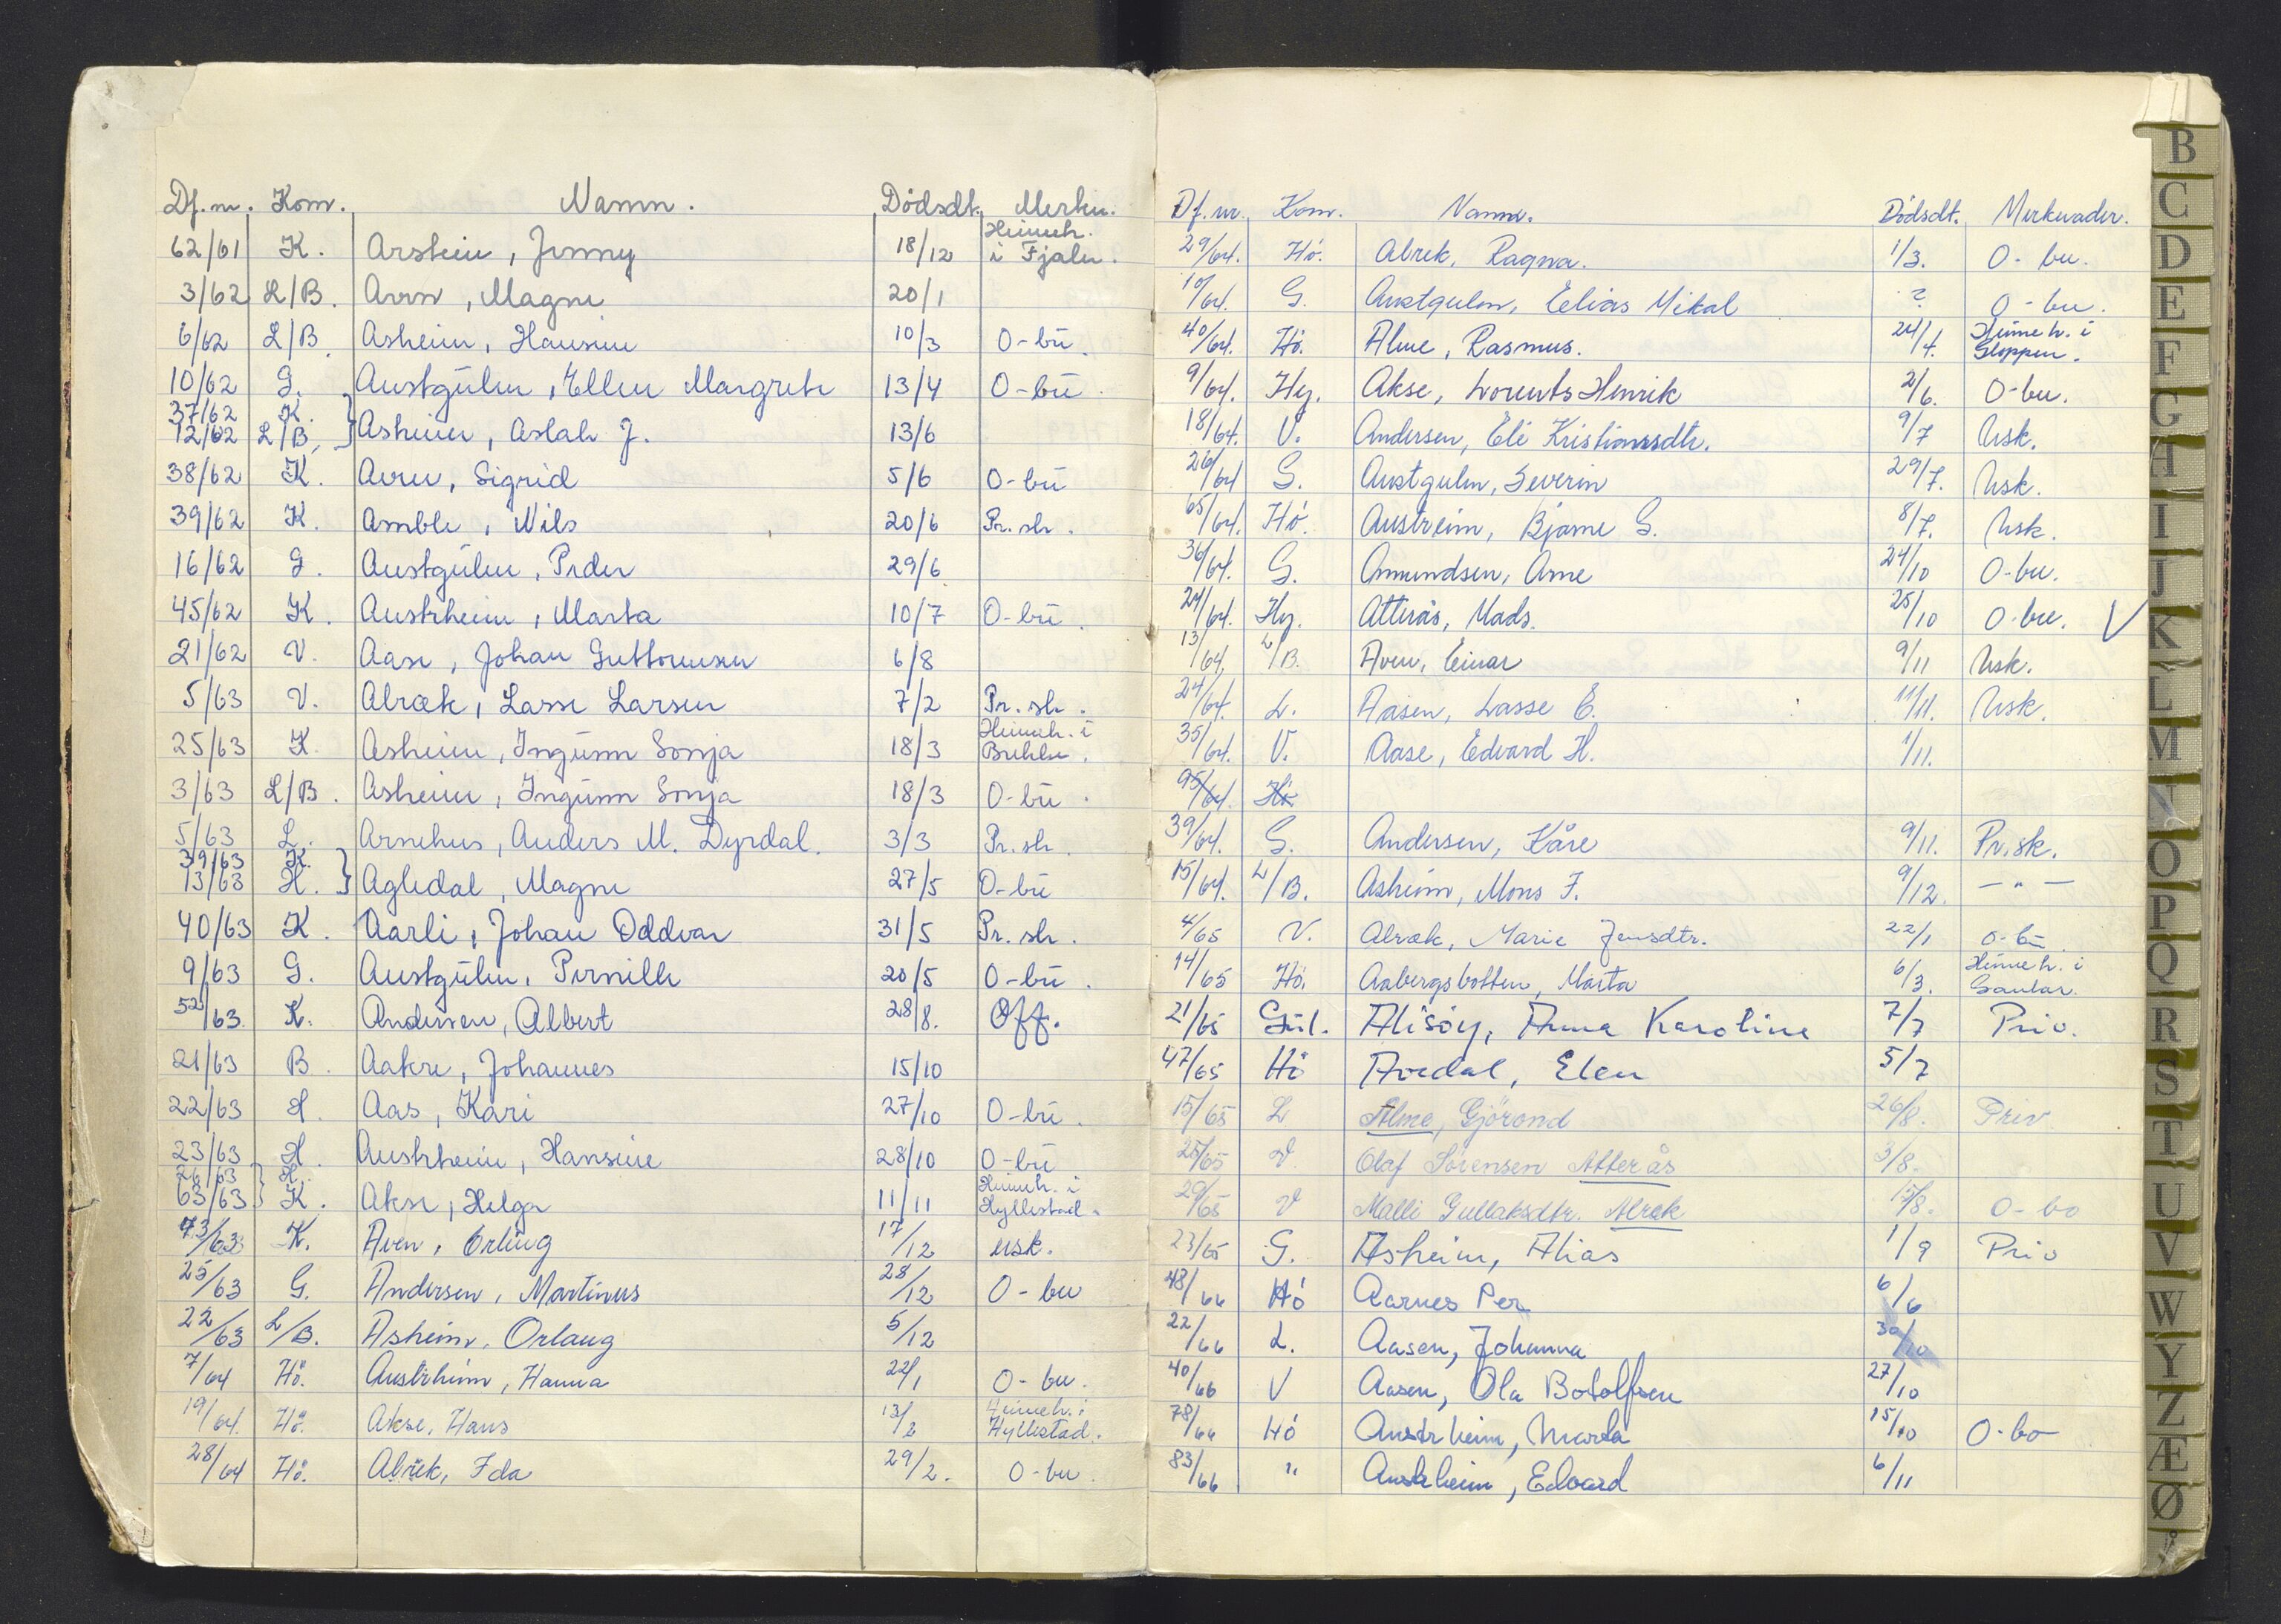 Df.nr. Kom. Namn. Dödsdt. Merkn.
62/61 K. Arstein, Jenny 18/12 Heimeh. i Fjaler.
3/62 L/B. Aven, Magne 20/1
6/62 L/B. Asheim, Hansine 10/3 O-bu.
10/62 G. Austgulen, Ellen Margrete 13/4 O-bu.
37/62 K.
12/62 L/B. Asheim, Aslak J. 13/6
38/62 K. Aven, Sigrid 5/6 O-bu
39/62 K. Amble, Nils 20/6 Pr. sk.
16/62 G. Austgulen, Peder 29/6
45/62 K. Austrheim, Marta 10/7 O-bu.
21/62 V. Aase, Johan Guttormsen 6/8
5/63 V. Alræk, Lasse Larsen 7/2 Pr. sk.
25/63 K. Asheim, Ingunn Sonja 18/3 Heimeh. i Brekke.
3/63 L/B. Asheim, Ingunn Sonja 18/3 O-bu.
5/63 L. Arnehus, Anders M. Dyrdal. 3/3 Pr. sk.
39/63 K.
13/63 H. Agledal, Magne 27/5 O-bu
40/63 K. Aarli, Johan Oddvar 31/5 Pr. sk.
9/63 G. Austgulen, Pernille 20/5 O-bu.
52/63. K. Andersen, Albert 28/8. Off.
21/63 B. Aakre, Johannes 15/10
22/63 H. Aas, Kari 27/10 O-bu.
23/63 H. Austrheim, Hansine 28/10 O-bu
26/63 H.
63/63 K. Akse, Helga 11/11 Heimeh. i Hyllestad.
73/63 K. Aven, Erling 17/12 usk.
25/63 G. Andersen, Martinus 28/12 O-bu
22/63 L/B. Asheim, Orlaug 5/12
7/64 Hö. Austrheim, Hanna 22/1 O-bu.
19/64. Hö. Akse, Hans 13/2 Heimeh. i Hyllestad.
28/64 Hö. Alrek, Ida 29/2. O-bu.
Df.nr. Kom. Namn. Dödsdt. Merknader.
29/64. Hö. Alrek, Ragna. 1/3. O-bu.
10/64. G. Austgulen, Elias Mikal ? O-bu.
40/64. Hö. Alme, Rasmus. 24/4. Heimeh. i Gloppen.
9/64. Hy. Akse, Lorents Henrik 2/6. O-bu.
18/64. V. Andersen, Eli Kristiansdtr. 9/7 Usk.
26/64 G. Austgulen, Severin 29/7. Usk.
65/64. Hö. Austreim, Bjarne G. 8/7. Usk.
36/64. G. Amundsen, Arne 24/10 O-bu.
24/64. Hy. Atterås, Mads. 25/10 O-bu. V
13/64. L/B. Aven, Einar 9/11 Usk.
24/64. L. Aasen, Lasse E. 11/11. Usk.
35/64. V. Aase, Edvard H. 1/11.
95/64. Hö.
39/64. G. Andersen, Kåre 9/11. Pr. sk.
15/64. L/B. Asheim, Mons J. 9/12. — " —
4/65 V. Alræk, Marie Jensdtr. 22/1 O-bu.
14/65 Hö. Aabergsbotten, Marta 6/3. Heimeh. i Gaular.
21/65 Gul. Alisöy, Anna Karoline 7/7 Priv.
47/65 Hö Avedal, Elen 5/7
15/65 L Alme, Gjörond 26/8. Priv
25/65 V Olaf Sørensen Atterås 3/8.
29/65 V Malli Gullaksdtr. Alræk 15/8. O-bo
23/65 G. Asheim, Alias 1/9 Priv
48/66 Hö Aarnes Per 6/6
22/66 L. Aasen, Johanna 30/10
40/66 V Aasen, Ola Botolfsen 27/10
78/66 Hö Austrheim, Marta 15/10 O-bo
83/66 " Austrheim, Edvard 6/11
B
C
D
E
F
G
H
I
J
K
L
M
N
O
P
Q
R
S
T
U
V
W
Y
Z
Æ
Ø
Å